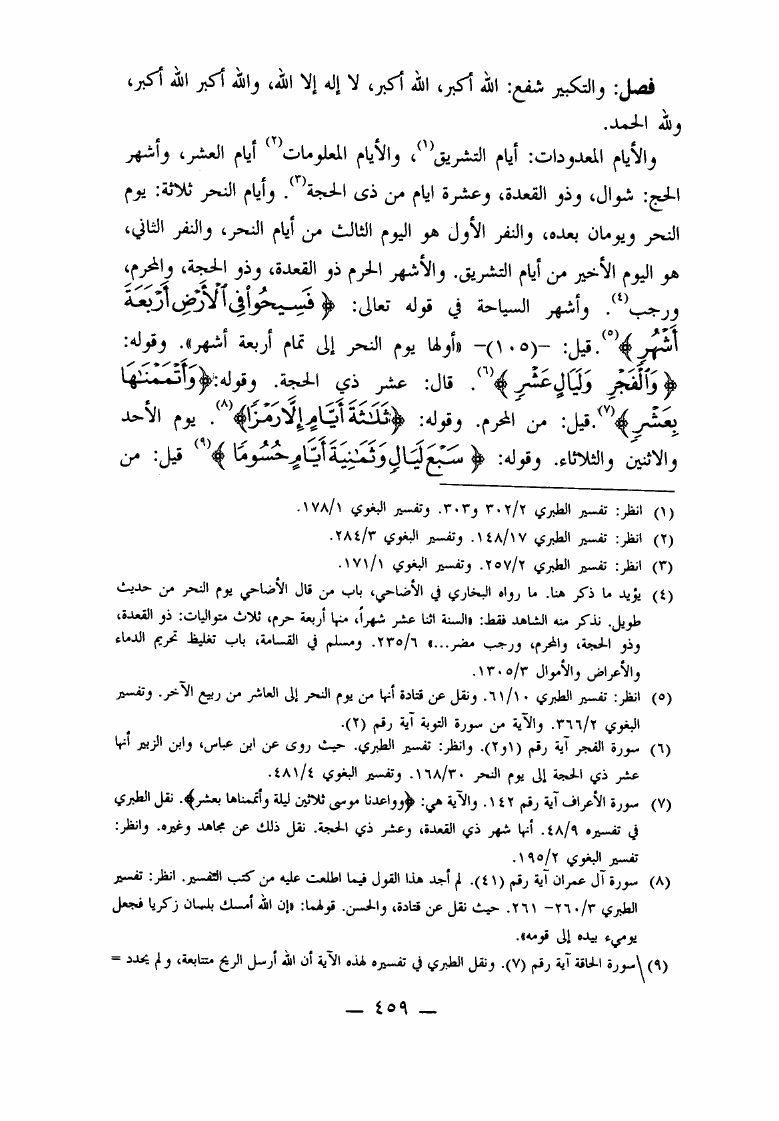 فصل: والتكبير شفع: الله أكبر، الله أكبر، لا إله إلا الله، والله أكبر الله أكبر،
ولله الحمد.
والأيام المعدودات: أيام التشريق(١)، والأيام المعلومات(٢) أيام العشر، وأشهر
الحج: شوال، وذو القعدة، وعشرة ايام من ذى الحجة(٣). وأيام النحر ثلاثة: يوم
النحر ويومان بعده، والنفر الأول هو اليوم الثالث من أيام النحر، والنفر الثاني،
هو اليوم الأخير من أيام التشريق. والأشهر الحرم ذو القعدة، وذو الحجة، والمحرم،
ورجب(٤). وأشهر السياحة في قوله تعالى: ﴿فَسِيحُوا۟ فِى ٱلْأَرْضِ أَرْبَعَةَ
أَشْهُرٍ﴾(٥). قيل: –(١٠٥)– «أولها يوم النحر إلى تمام أربعة أشهر». وقوله:
﴿وَٱلْفَجْرِ وَلَيَالٍ عَشْرٍ﴾(٦). قال: عشر ذي الحجة. وقوله: ﴿وَأَتْمَمْنَٰهَا
بِعَشْرٍ﴾(٧). قيل: من المحرم. وقوله: ﴿ثَلَٰثَةَ أَيَّامٍ إِلَّا رَمْزًا﴾(٨). يوم الأحد
والاثنين والثلاثاء. وقوله: ﴿سَبْعَ لَيَالٍ وَثَمَٰنِيَةَ أَيَّامٍ حُسُومًا﴾(٩) قيل: من
(١) انظر: تفسير الطبري ٣٠٢/٢ و٣٠٣. وتفسير البغوي ١٧٨/١.
(٢) انظر: تفسير الطبري ١٤٨/١٧. وتفسير البغوي ٢٨٤/٣.
(٣) انظر: تفسير الطبري ٢٥٧/٢. وتفسير البغوي ١٧١/١.
(٤) يؤيد ما ذكر هنا. ما رواه البخاري في الأضاحي، باب من قال الأضاحي يوم النحر من حديث
طويل. نذكر منه الشاهد فقط: «السنة اثنا عشر شهراً، منها أربعة حرم، ثلاث متواليات: ذو القعدة،
وذو الحجة، والمحرم، ورجب مضر...» ٢٣٥/٦. ومسلم في القسامة، باب تغليظ تحريم الدماء
والأعراض والأموال ١٣٠٥/٣.
(٥) انظر: تفسير الطبري ٦١/١٠. ونقل عن قتادة أنها من يوم النحر إلى العاشر من ربيع الآخر. وتفسير
البغوي ٣٦٦/٢. والآية من سورة التوبة آية رقم (٢).
(٦) سورة الفجر آية رقم (١و٢). وانظر: تفسير الطبري. حيث روى عن ابن عباس، وابن الزبير أنها
عشر ذي الحجة إلى يوم النحر ١٦٨/٣٠. وتفسير البغوي ٤٨١/٤.
(٧) سورة الأعراف آية رقم ١٤٢. والآية هي: ﴿وواعدنا موسى ثلاثين ليلة وأتممناها بعشر﴾. نقل الطبري
في تفسيره ٤٨/٩. أنها شهر ذي القعدة، وعشر ذي الحجة. نقل ذلك عن مجاهد وغيره. وانظر:
تفسير البغوي ١٩٥/٢.
(٨) سورة آل عمران آية رقم (٤١). لم أجد هذا القول فيما اطلعت عليه من كتب التفسير. انظر: تفسير
الطبري ٢٦٠/٣– ٢٦١. حيث نقل عن قتادة، والحسن. قولهما: «إن الله أمسك بلسان زكريا فجعل
يوميء بيده إلى قومه».
(٩) سورة الحاقة آية رقم (٧). ونقل الطبري في تفسيره لهذه الآية أن الله أرسل الريح متتابعة، ولم يحدد =
— ٤٥٩ —